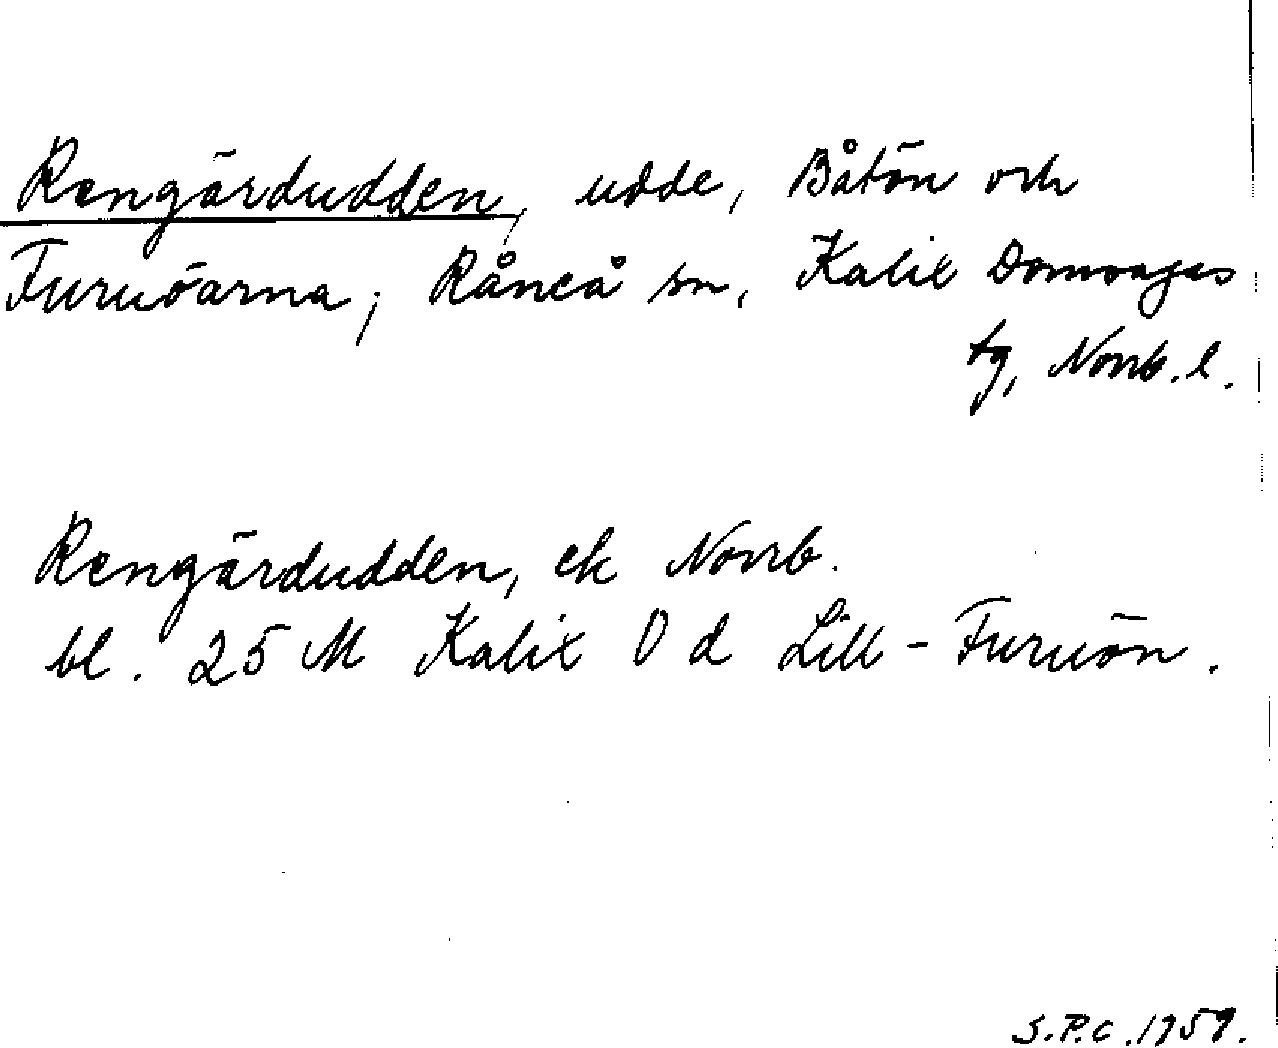 Rengärdudden, udde, Båtön och
Furuöarna, Råneå sn, Kalix Domsagas
tg, Norrb. l.
Rengärdudden, ek Norrb.
bl. 25 M Kalix O d Lill-Furuön.
S.P.C. 1959.